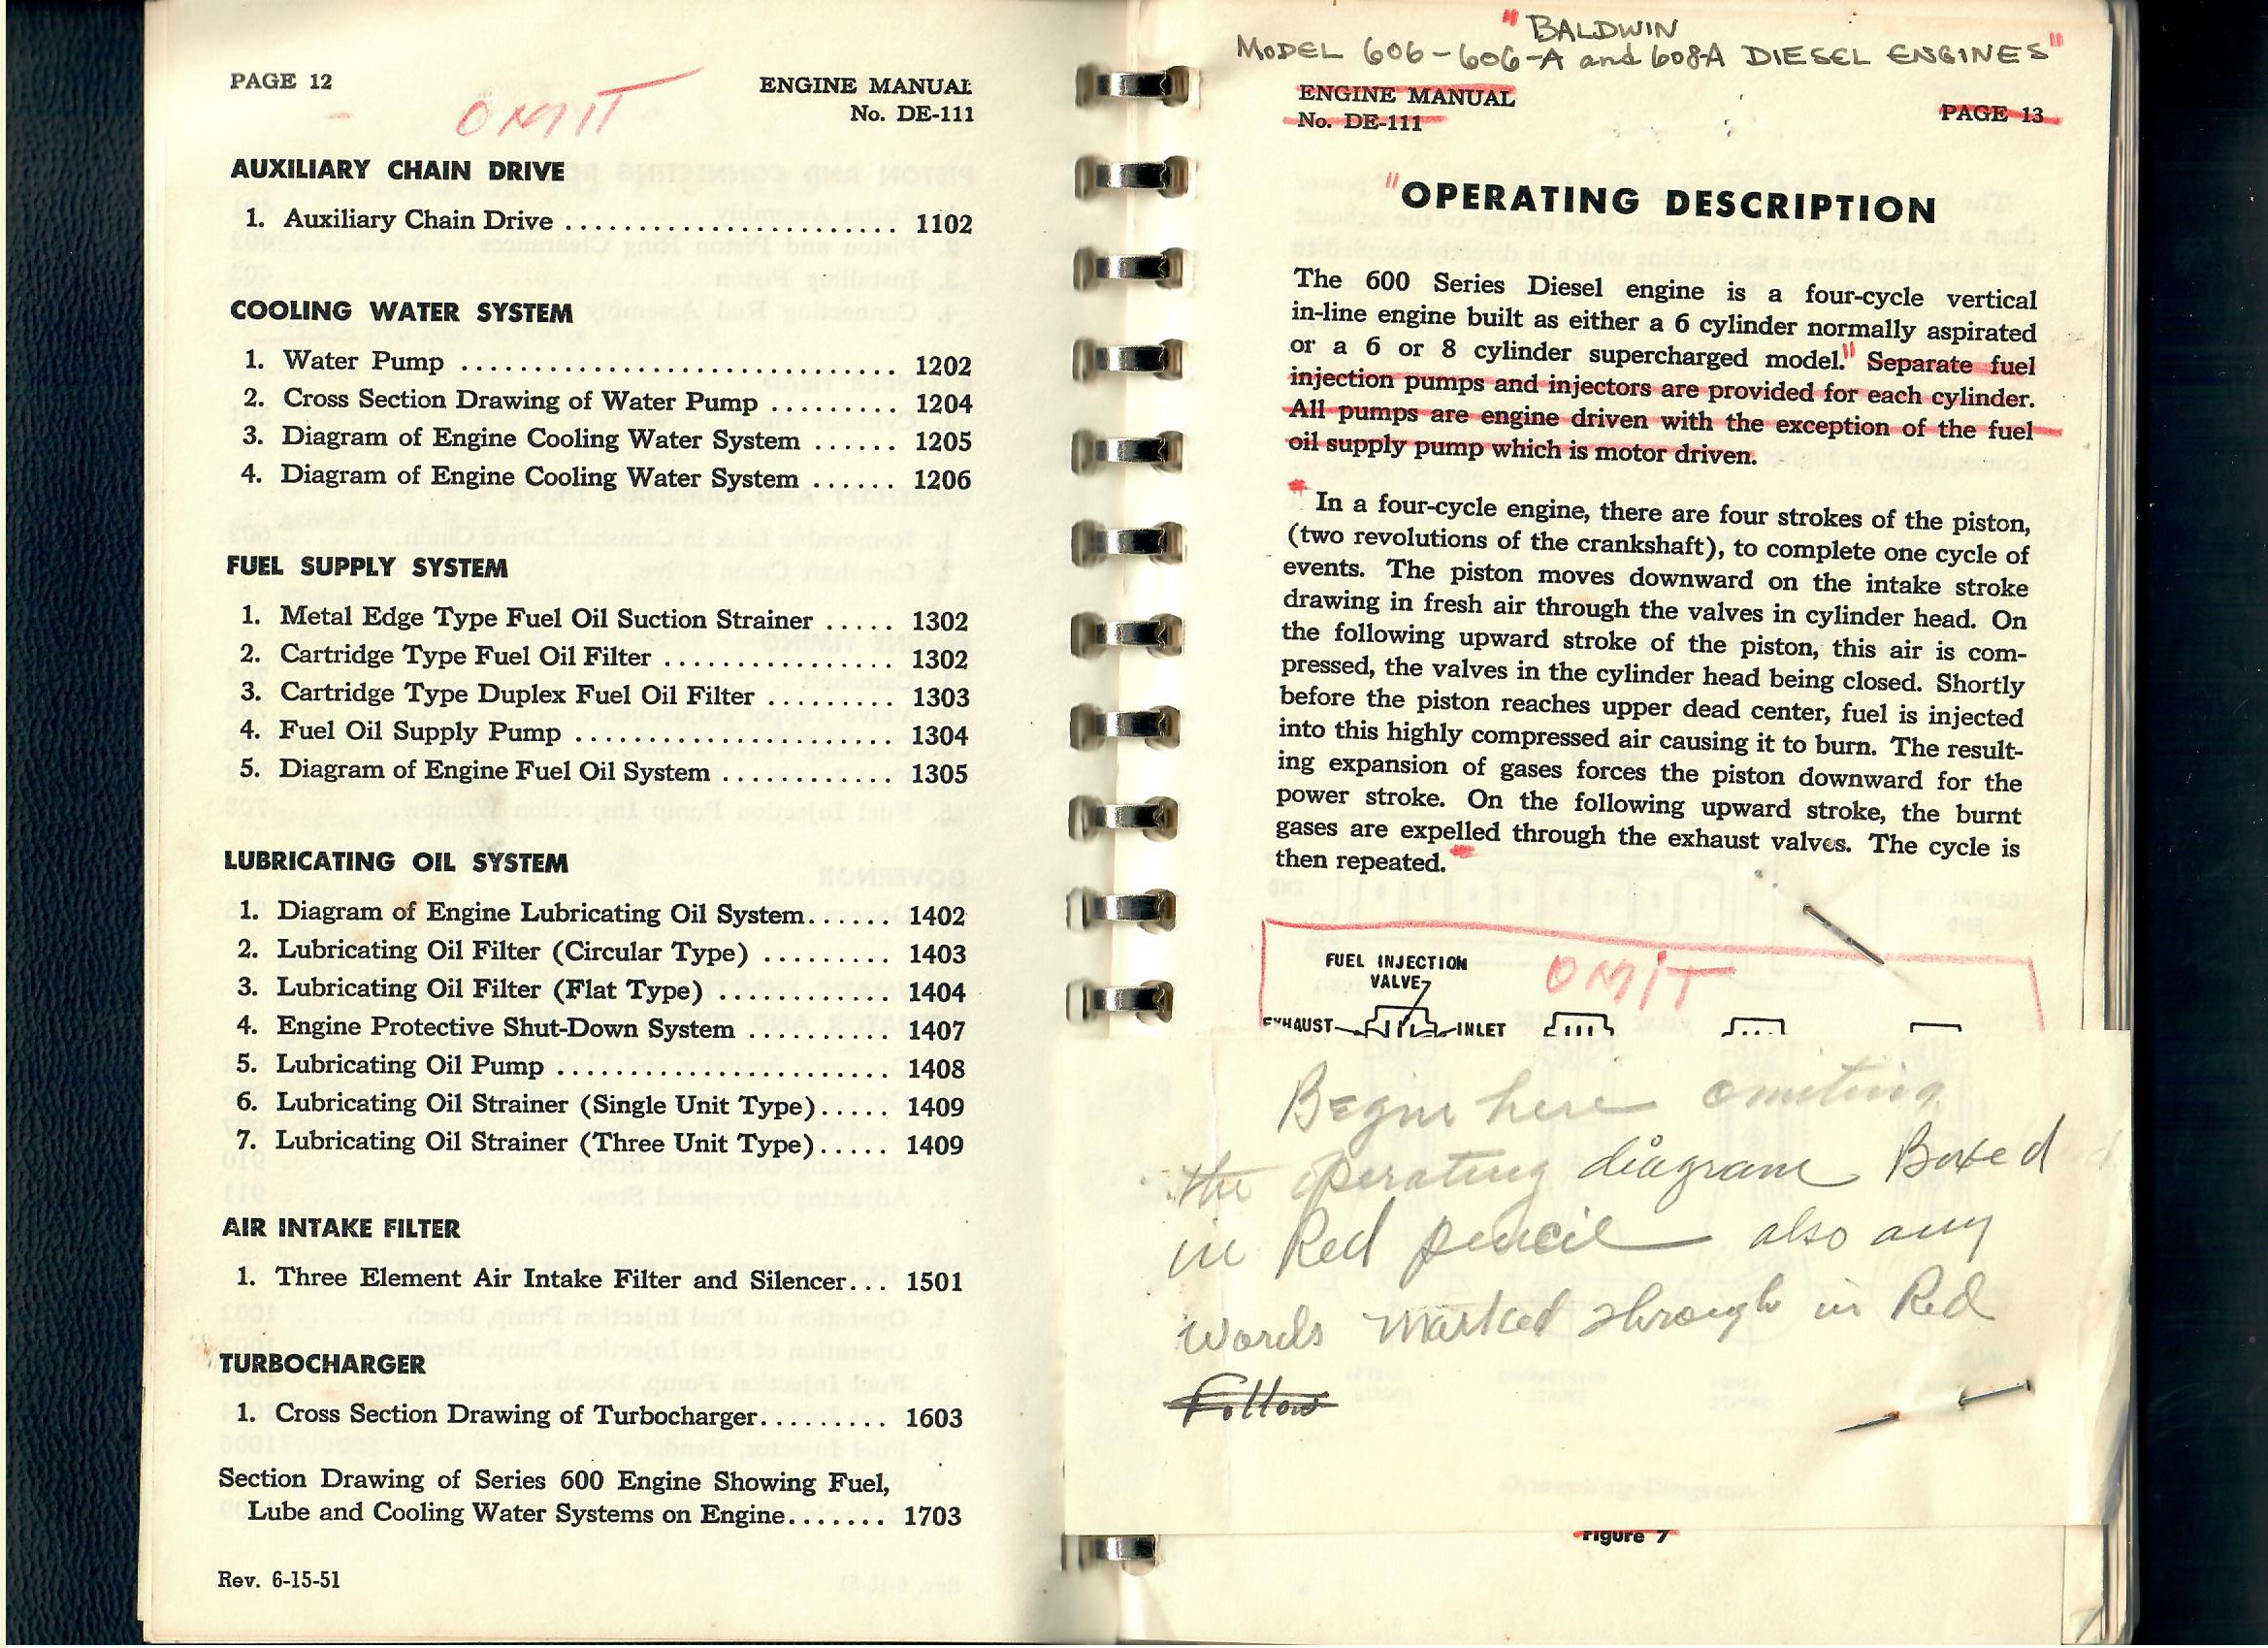 PAGE 12
ENGINE MANUAL
No. DE-111
OMIT
AUXILIARY CHAIN DRIVE
1. Auxiliary Chain Drive ....................... 1102
COOLING WATER SYSTEM
1. Water Pump .............................. 1202
2. Cross Section Drawing of Water Pump ......... 1204
3. Diagram of Engine Cooling Water System ...... 1205
4. Diagram of Engine Cooling Water System ...... 1206
FUEL SUPPLY SYSTEM
1. Metal Edge Type Fuel Oil Suction Strainer ..... 1302
2. Cartridge Type Fuel Oil Filter ................ 1302
3. Cartridge Type Duplex Fuel Oil Filter ......... 1303
4. Fuel Oil Supply Pump ...................... 1304
5. Diagram of Engine Fuel Oil System ............ 1305
LUBRICATING OIL SYSTEM
1. Diagram of Engine Lubricating Oil System...... 1402
2. Lubricating Oil Filter (Circular Type) ......... 1403
3. Lubricating Oil Filter (Flat Type) ............ 1404
4. Engine Protective Shut-Down System .......... 1407
5. Lubricating Oil Pump ....................... 1408
6. Lubricating Oil Strainer (Single Unit Type)..... 1409
7. Lubricating Oil Strainer (Three Unit Type)..... 1409
AIR INTAKE FILTER
1. Three Element Air Intake Filter and Silencer... 1501
TURBOCHARGER
1. Cross Section Drawing of Turbocharger......... 1603
Section Drawing of Series 600 Engine Showing Fuel,
Lube and Cooling Water Systems on Engine....... 1703
Rev. 6-15-51
"BALDWIN
MODEL 606-606-A and 608A DIESEL ENGINES"
ENGINE MANUAL
No. DE-111
PAGE 13
"OPERATING DESCRIPTION
The 600 Series Diesel engine is a four-cycle vertical
in-line engine built as either a 6 cylinder normally aspirated
or a 6 or 8 cylinder supercharged model." Separate fuel
injection pumps and injectors are provided for each cylinder.
All pumps are engine driven with the exception of the fuel
oil supply pump which is motor driven.
" In a four-cycle engine, there are four strokes of the piston,
(two revolutions of the crankshaft), to complete one cycle of
events. The piston moves downward on the intake stroke
drawing in fresh air through the valves in cylinder head. On
the following upward stroke of the piston, this air is com-
pressed, the valves in the cylinder head being closed. Shortly
before the piston reaches upper dead center, fuel is injected
into this highly compressed air causing it to burn. The result-
ing expansion of gases forces the piston downward for the
power stroke. On the following upward stroke, the burnt
gases are expelled through the exhaust valves. The cycle is
then repeated."
FUEL INJECTION
VALVE
OMIT
EXHAUST
INLET
Begin here omiting
the operating diagram Boxed
in Red pencil also any
words marked through in Red
Follow
Figure 7